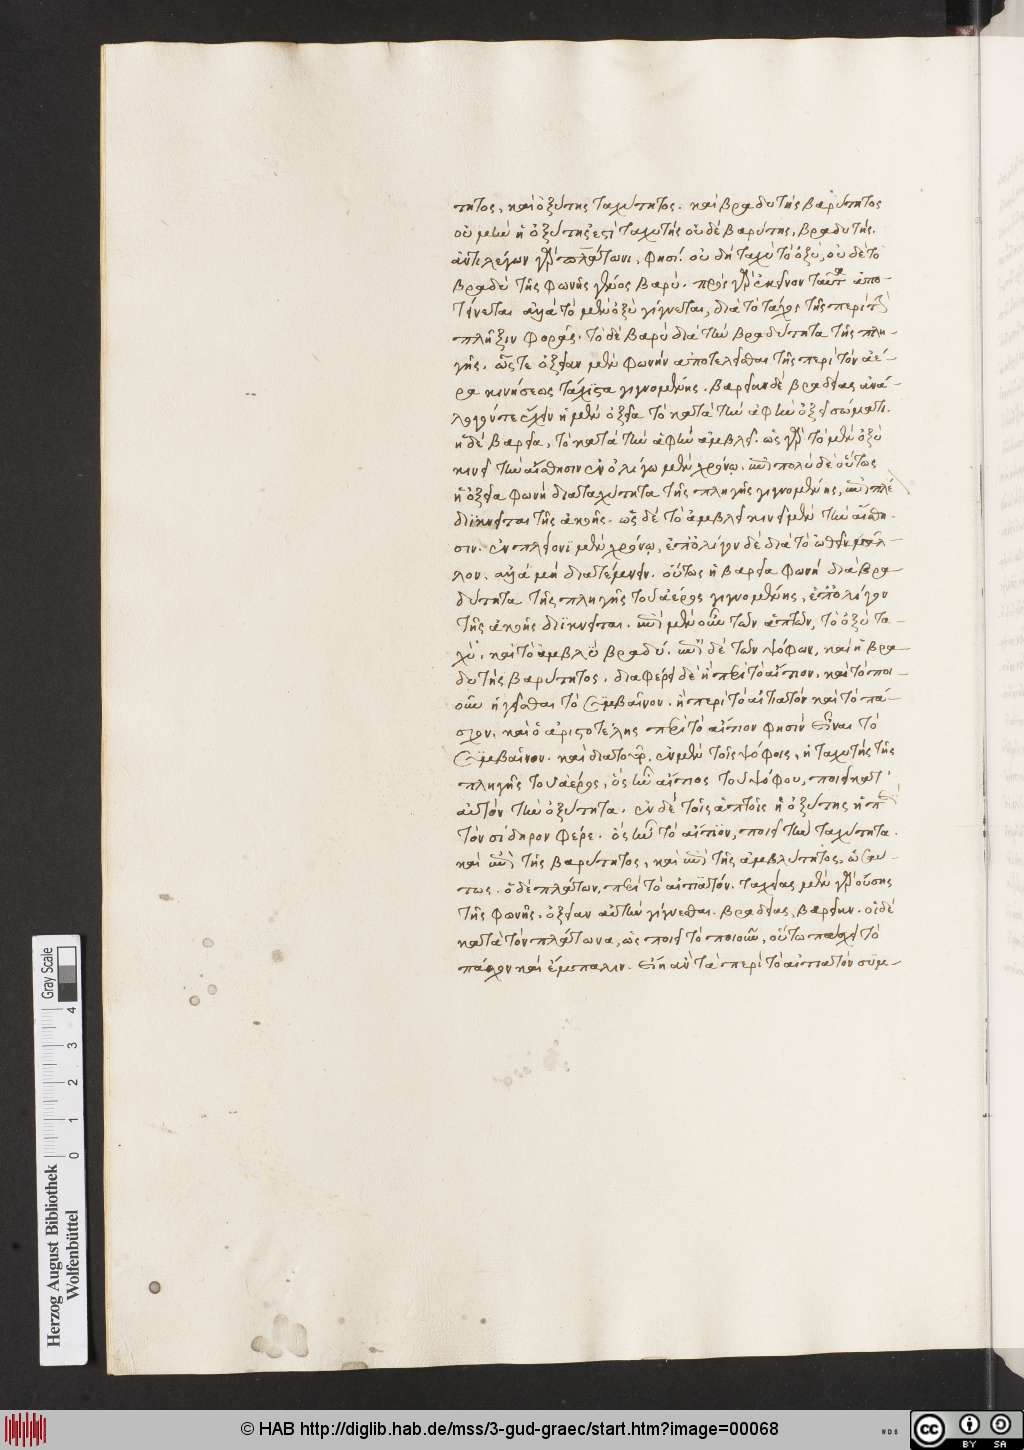 τητος, καὶ ὀξύτης ταχύτητος. καὶ βραδυτὴς βαρύτητος
οὐ μὴν ἡ ὀξύτης ἐστὶ ταχυτής οὐδὲ βαρύτης, βραδυτής.
ἀντιλέγων γὰρ πλάτωνι, φησί. οὐ δὴ ταχὺ τὸ ὀξύ, οὐ δὲ τὸ
βραδὺ τῆς φωνῆς γένος βαρύ. πρὸς γὰρ ἐκεῖνον ταῦτα ἀπο-
τείνεται ἀλλὰ τὸ μὲν ὀξὺ γίγνεται, διὰ τὸ τάχος τῆς περὶ τὴν
πλῆξιν φορᾶς. τὸ δὲ βαρὺ διὰ τὴν βραδύτητα τῆς πλη-
γῆς. ὥστε ὀξεῖαν μὲν φωνὴν ἀποτελεῖσθαι τῆς περὶ τὸν ἀέ-
ρα κινήσεως τάχιστα γιγνομένης. βαρεῖαν δὲ βραδείας ἀνά-
λογόν τε ἔχειν ἡ μὲν ὀξεῖα τὸ κατὰ τὴν ἁφὴν ὀξεῖ σώματι.
ἡ δὲ βαρεῖα, τὸ κατὰ τὴν ἁφὴν ἀμβλεῖ. ὡς γὰρ τὸ μὲν ὀξὺ
κινεῖ τὴν αἴσθησιν ἐν ὀλίγω μὲν χρόνῳ. ἐπὶ πολὺ δὲ οὕτως
ἡ ὀξεῖα φωνὴ διὰ ταχύτητα τῆς πληγῆς γιγνομένης, ἐπὶ πλέ
διϊκνεῖται τῆς ἀκοῆς. ὡς δὲ τὸ ἀμβλὺ κινεῖ μὲν τὴν αἴσθη-
σιν. ἐν πλείονϊ μὲν χρόνῳ, ἐπ' ὀλίγον δὲ διὰ τὸ ὠθεῖν μᾶλ-
λον. ἀλλὰ μὴ διατέμνειν. οὕτως ἡ βαρεῖα φωνὴ διὰ βρα-
δύτητα τῆς πληγῆς τοῦ ἀέρος γιγνομένης, ἐπ' ὀλίγον
τῆς ἀκοῆς διϊκνεῖται. ἐπὶ μὲν οὖν τῶν ἁπτῶν, τὸ ὀξὺ τα-
χύ. καὶ τὸ ἀμβλὺ βραδύ. ἐπὶ δὲ τῶν ψόφων, καὶ ἡ βρα-
δυτὴς βαρύτητος. διαφέρει δὲ ἡ περὶ τὸ αἴτιον. καὶ τὸ ποι-
οῦν ἡγεῖσθαι τὸ συμβαῖνον. ἢ περὶ τὸ αἰτιατὸν καὶ τὸ πά-
σχον. καὶ ὁ ἀριστοτέλης περὶ τὸ αἴτιον φησὶν εἶναι τὸ
συμβαῖνον. καὶ διὰ τοῦτο, ἐν μὲν τοῖς ψόφοις, ἡ ταχυτὴς τῆς
πληγῆς τοῦ ἀέρος, ὃς ἦν αἴτιος τοῦ ψόφου, ποιεῖ κατ'
αὐτὸν τὴν ὀξύτητα. ἐν δὲ τοῖς ἁπτοῖς ἡ ὀξύτης ἡ περὶ
τὸν σίδηρον φέρε. ὃς ἦν τὸ αἴτϊον, ποιεῖ τὴν ταχύτητα.
καὶ ἐπὶ τῆς βαρύτητος, καὶ ἐπὶ τῆς ἀμβλύτητος, ὡσαύ-
τως. ὁ δὲ πλάτων, περὶ τὸ αἰτιατόν. ταχείας μὲν γὰρ οὔσης
τῆς φωνῆς. ὀξεῖαν αὐτὴν γίγνεσθαι. βραδείας, βαρεῖαν. οἱ δὲ
κατὰ τὸν πλάτωνα, ὡς ποιεῖ τὸ ποιοῦν, οὕτω πάσχει τὸ
πάσχον καὶ ἔμπαλιν. εἴη ἂν τὰ περὶ τὸ αἰτιατὸν σύμ-
Herzog August Bibliothek
Wolfenbüttel
0 1 2 3 4
Gray Scale
© HAB http://diglib.hab.de/mss/3-gud-graec/start.htm?image=00068
cc BY SA